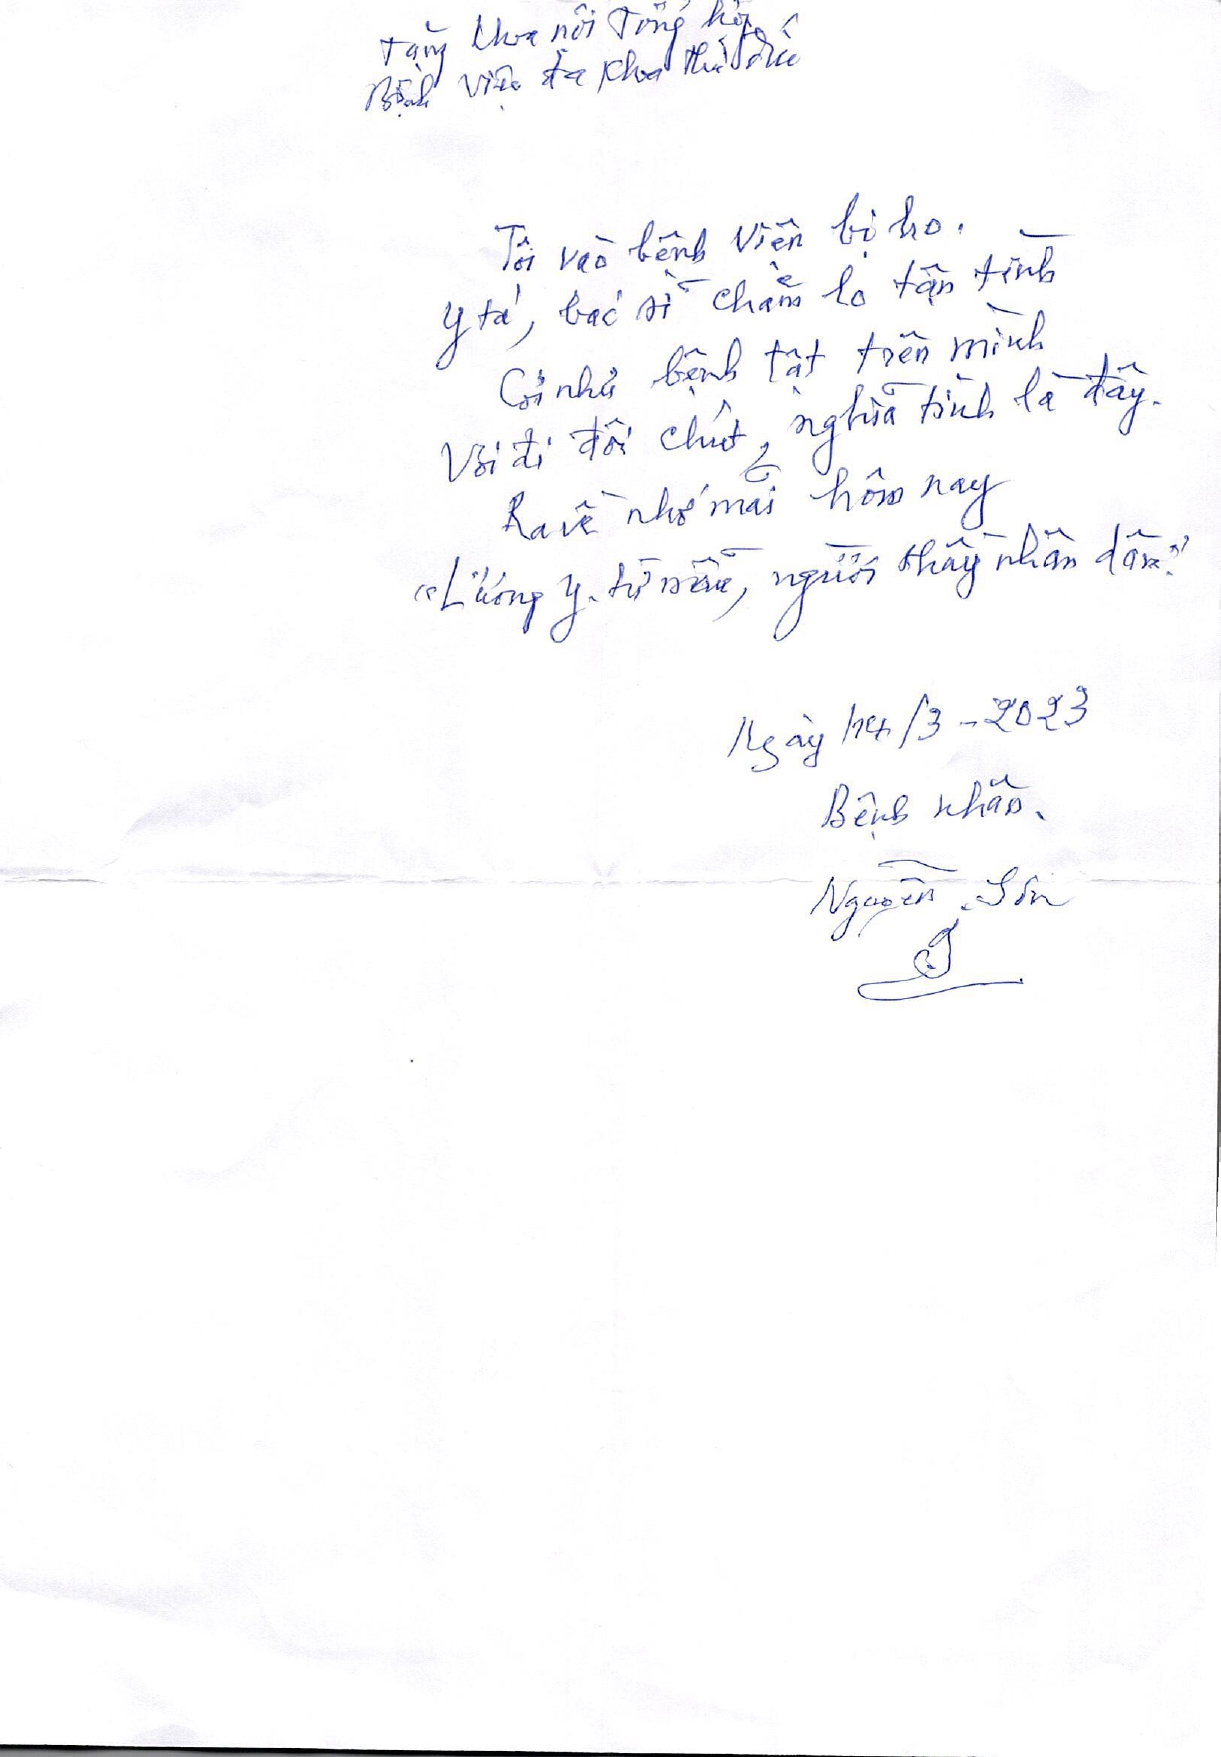 Tặng khoa nội Tổng hợp
Bệnh viện đa khoa Thủ Đức
Tôi vào bệnh viện bị ho.
Y tá, bác sĩ chăm lo tận tình
Coi như bệnh tật trên mình
Vơi đi đôi chút, nghĩa tình là đây.
Ra về nhớ mãi hôm nay
"Lương y từ mẫu, người thầy nhân dân"
Ngày 14/3-2023
Bệnh nhân.
Nguyễn Sơn